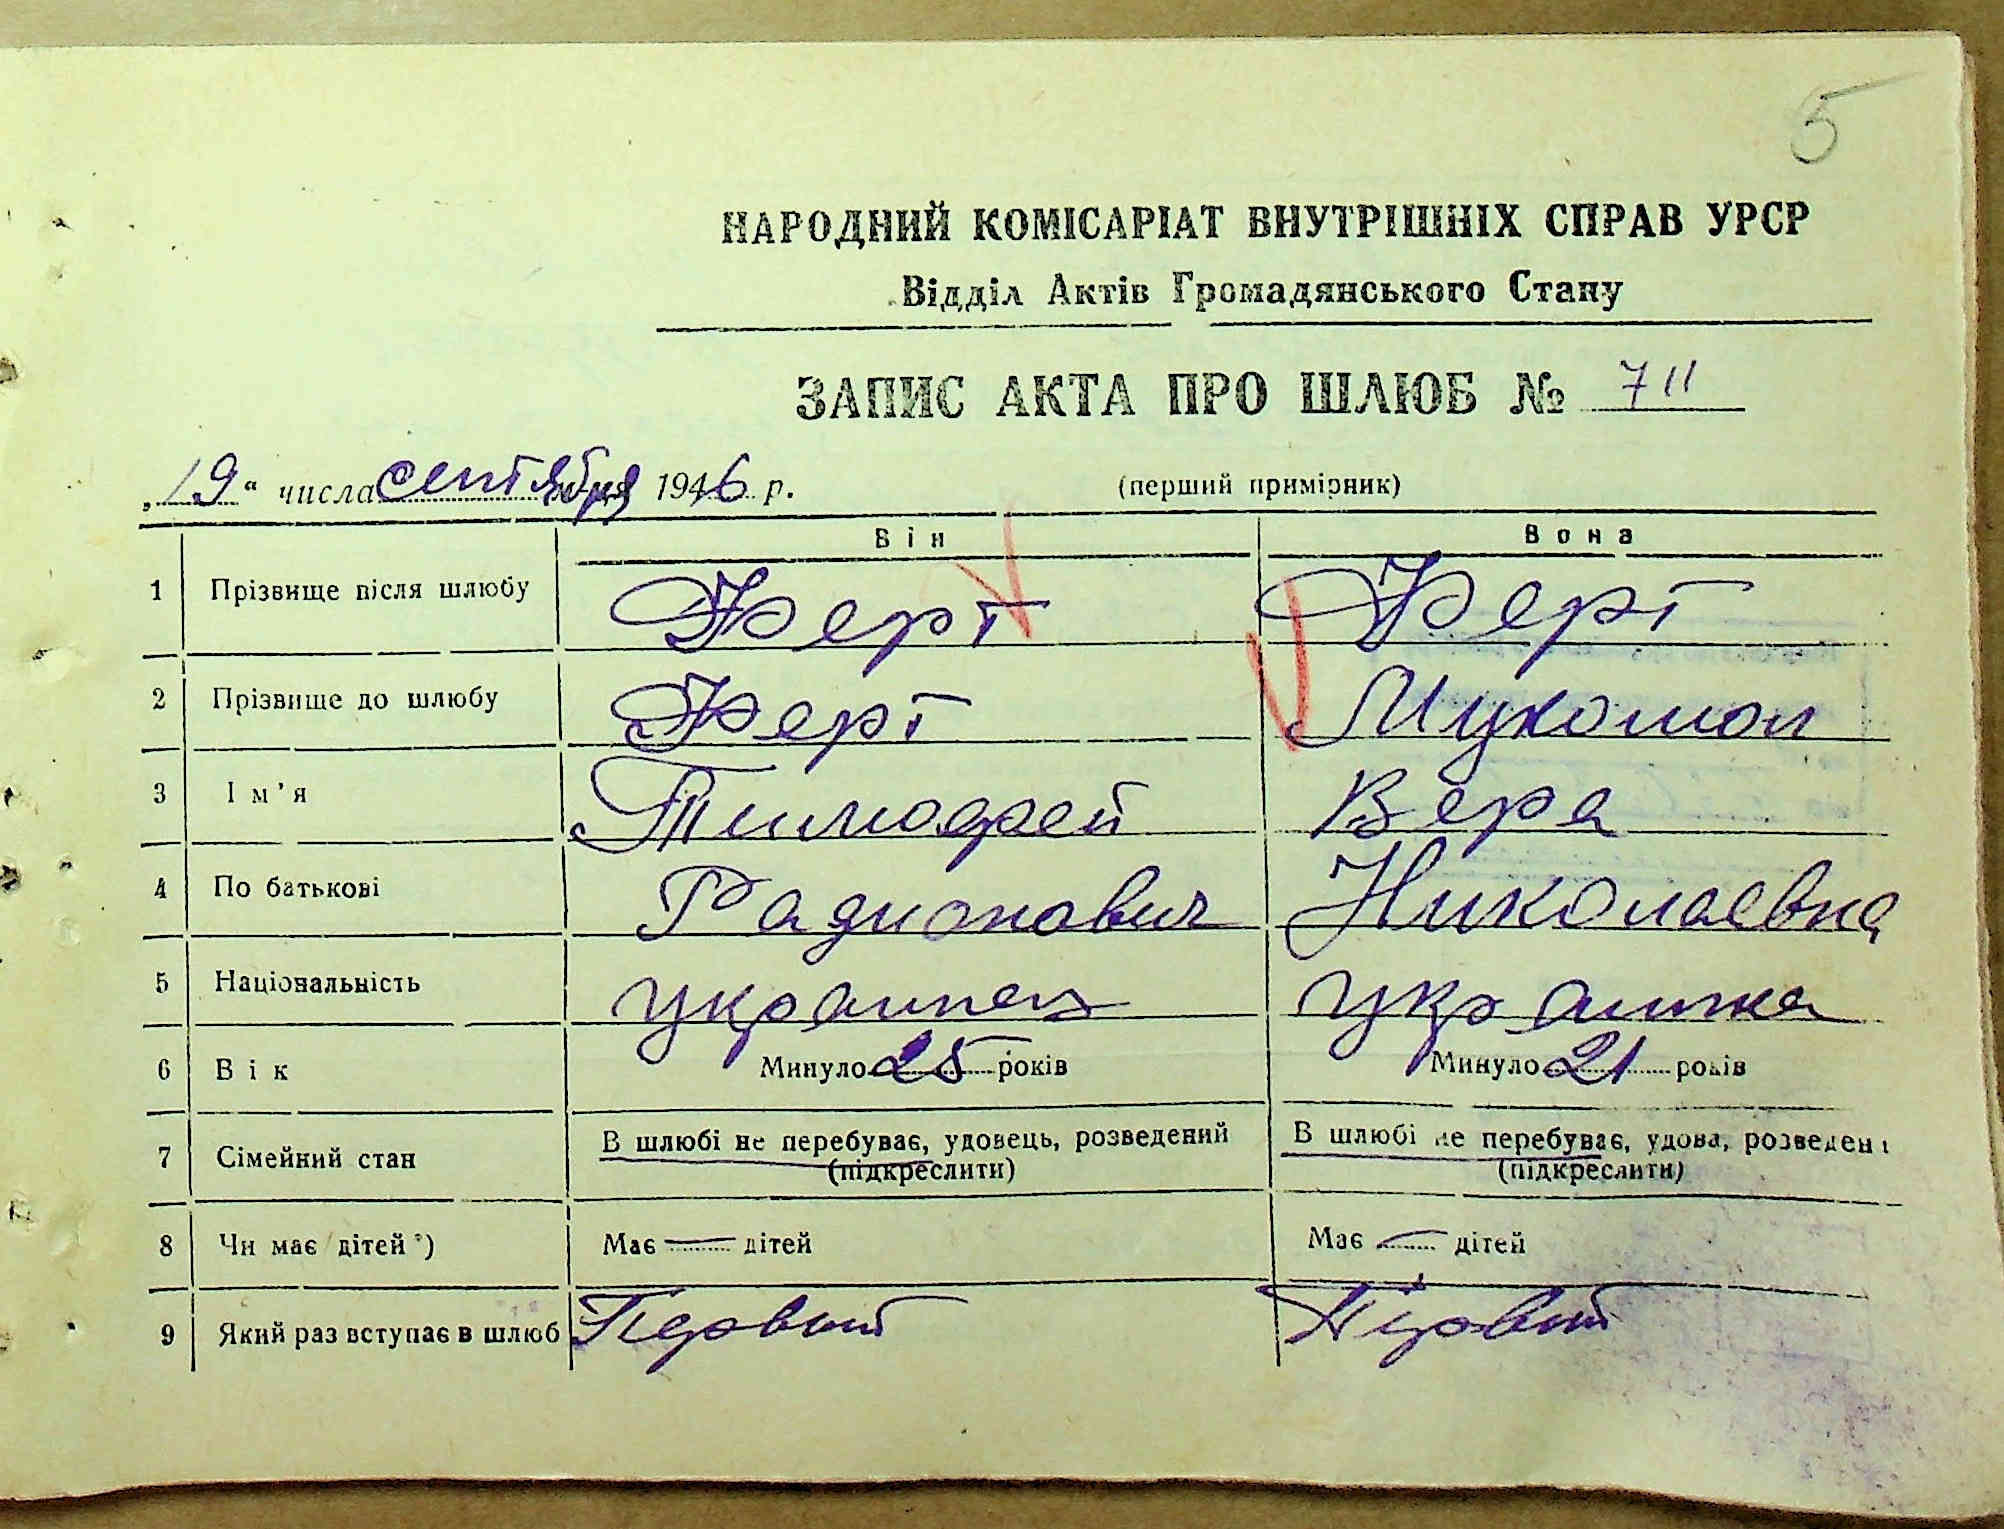 5
НАРОДНИЙ КОМІСАРІАТ ВНУТРІШНІХ СПРАВ УРСР
Відділ Актів Громадянського Стану
ЗАПИС АКТА ПРО ШЛЮБ № 711
„19" числа сентября 1946 р. (перший примірник)
Він Вона
1 Прізвище після шлюбу Ферт Ферт
2 Прізвище до шлюбу Ферт Мукомол
3 Ім'я Тимофей Вера
4 По батькові Радионович Николаевна
5 Національність украинец украинка
6 Вік Минуло 25 років Минуло 21 років
7 Сімейний стан В шлюбі не перебуває, удовець, розведений В шлюбі не перебуває, удова, розведені
(підкреслити) (підкреслити)
8 Чи має дітей*) Має — дітей Має — дітей
9 Який раз вступає в шлюб Первый Первый